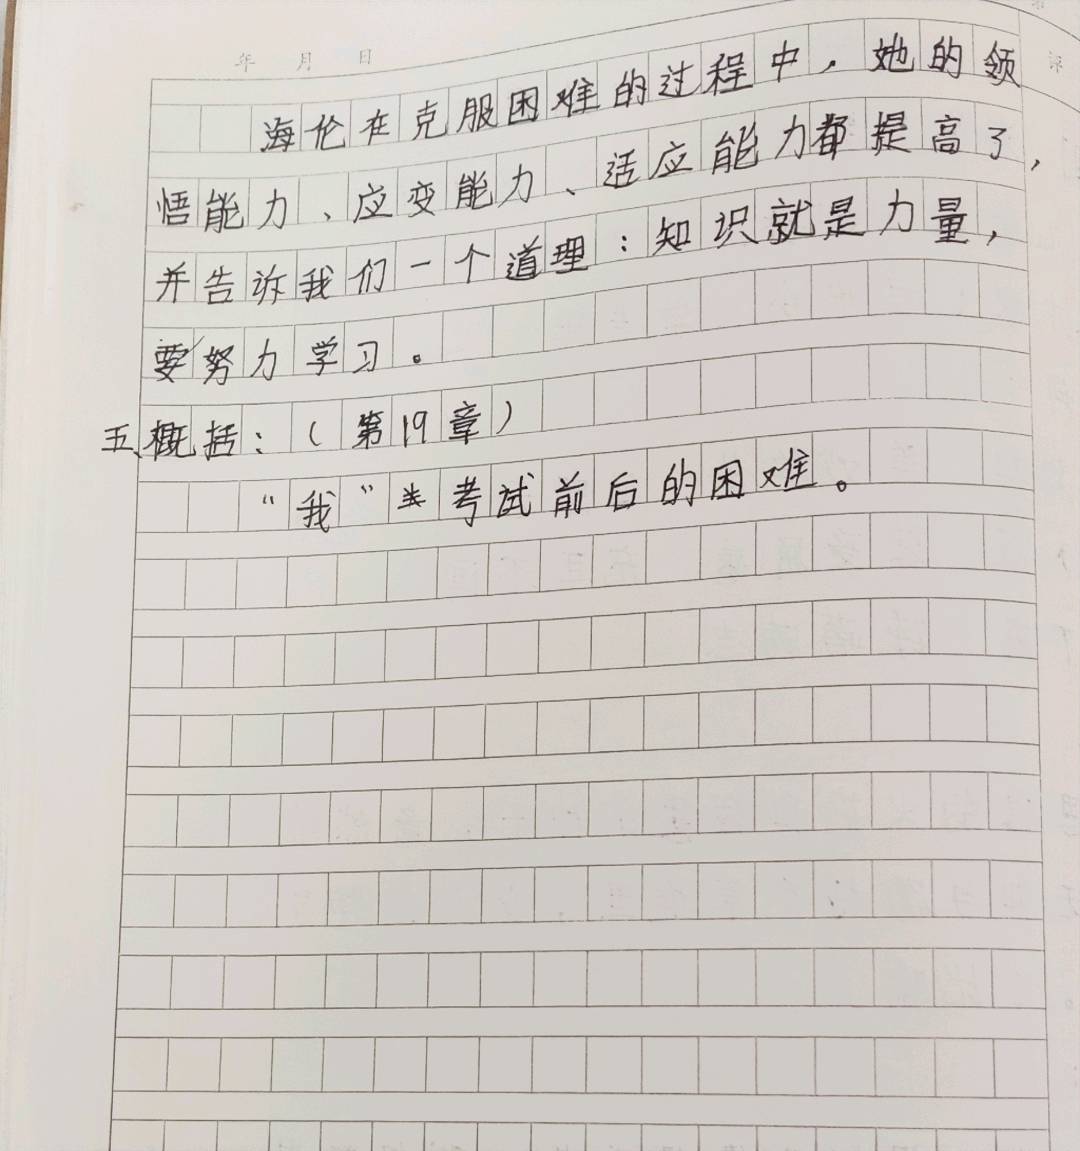 年 月 日
海伦在克服困难的过程中，她的领
悟能力、应变能力、适应能力都提高了，
并告诉我们一个道理：知识就是力量，
要努力学习。
五、概括：（第19章）
“我”考试前后的困难。